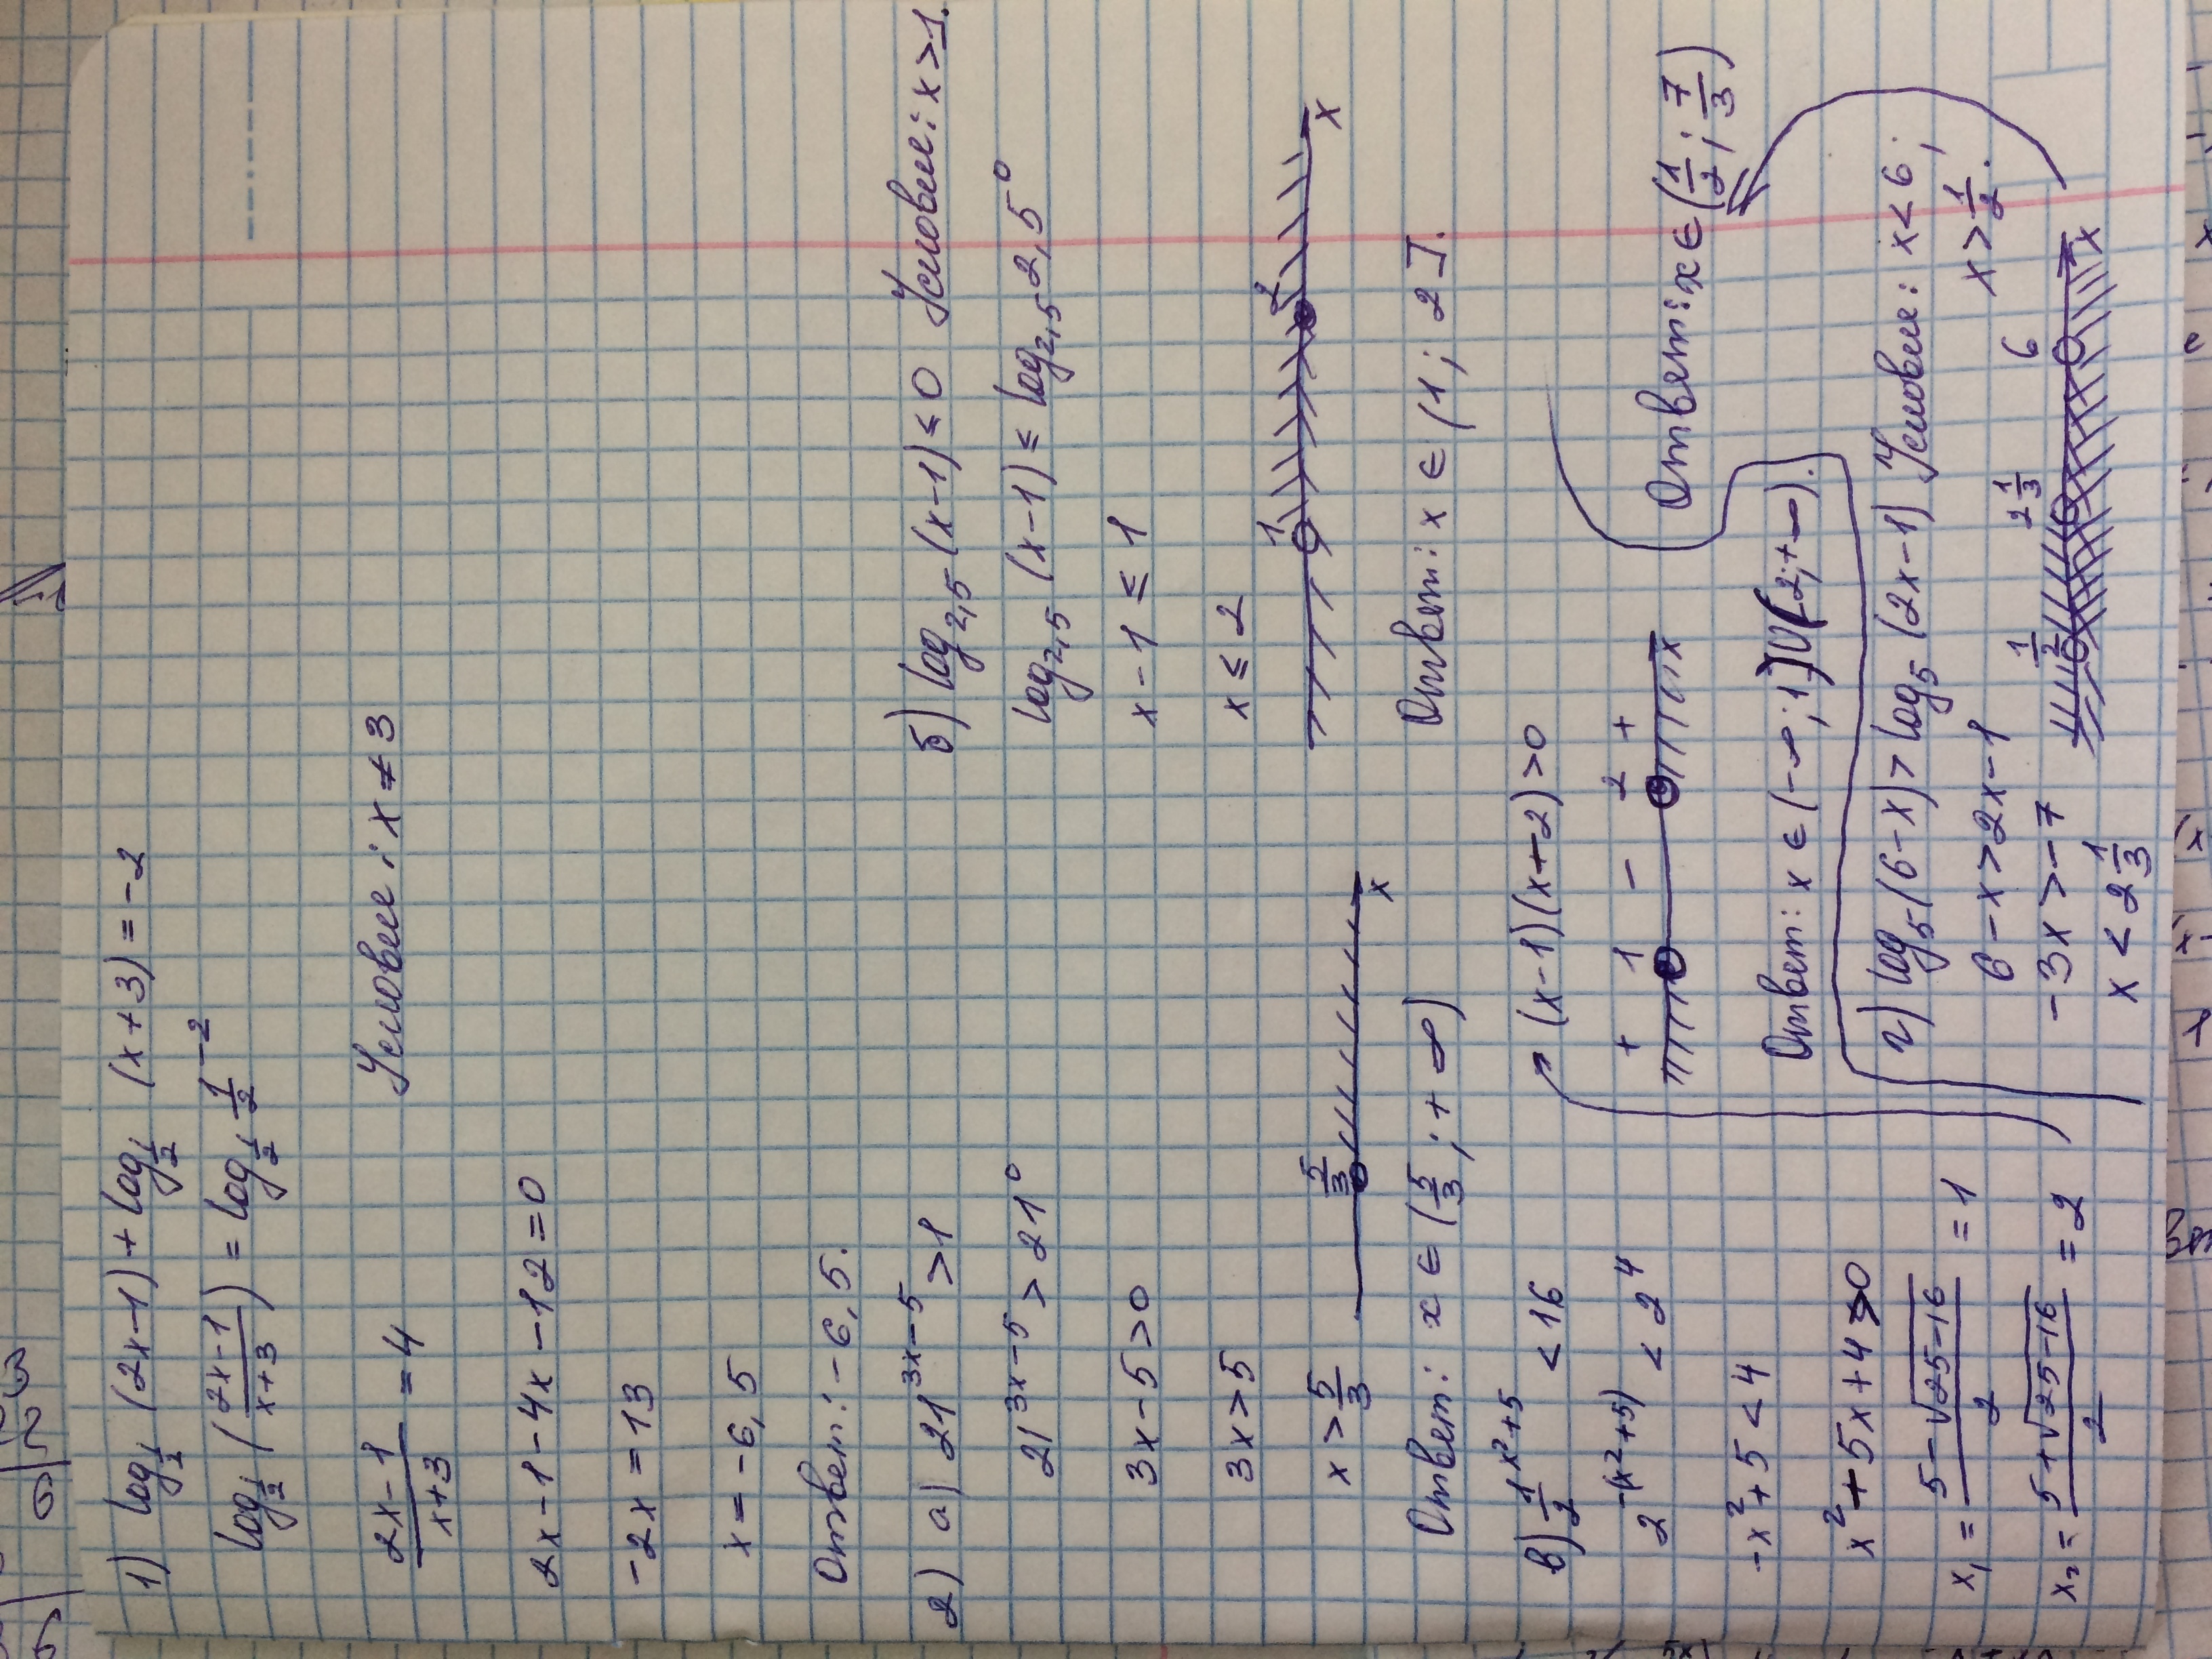 1) log½ (2x-1) + log½ (x+3) = -2
log½ ((2x-1)/(x+3)) = log½ ½⁻²
(2x-1)/(x+3) = 4 Условие: x ≠ 3
2x-1-4x-12=0
-2x=13
x=-6,5
Ответ: -6,5.
2) а) 21^(3x-5) > 1
21^(3x-5) > 21⁰
3x-5>0
3x>5
x > 5/3
5/3 x
Ответ: x ∈ (5/3; +∞)
б) log₂,₅ (x-1) ≤ 0 Условие: x > 1.
log₂,₅ (x-1) ≤ log₂,₅ 2,5⁰
x-1 ≤ 1
x ≤ 2
1 2 x
Ответ: x ∈ (1; 2].
в) ½^(x²+5) < 16
2^(-(x²+5)) < 2⁴
-x²+5<4
x²+5x+4>0
x₁ = (5-√(25-16))/2 = 1
x₂ = (5+√(25-16))/2 = 2
(x-1)(x+2)>0
+ 1 - 2 +
x
Ответ: x ∈ (-∞; 1)U(2;+∞).
г) log₅(6-x) > log₅ (2x-1) Условие: x<6;
x > ½.
6-x>2x-1
-3x>-7
x < 2⅓
½ 2⅓ 6
x
Ответ: x ∈ (½; 7/3)